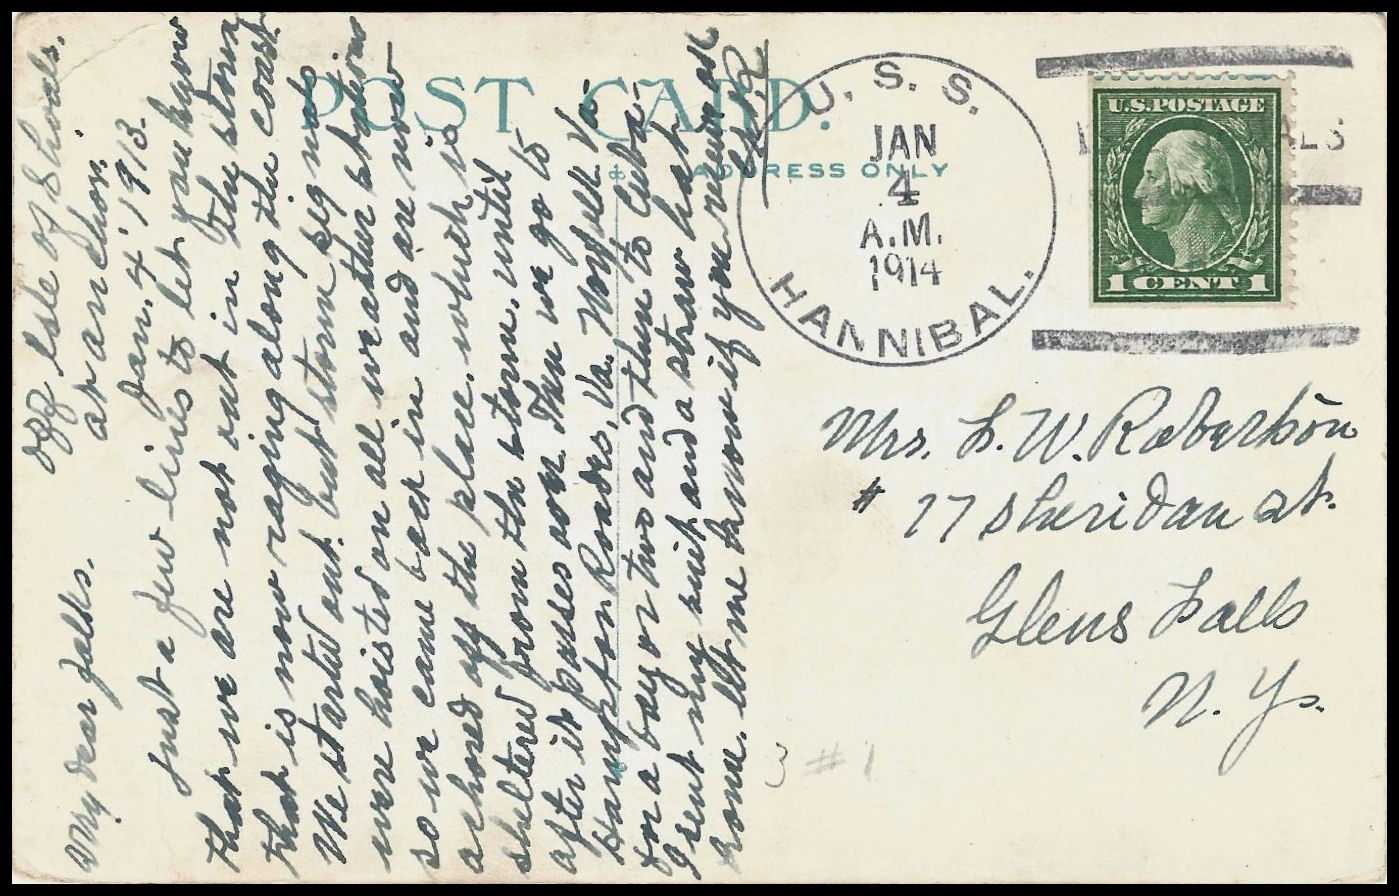 POST CARD.
ADDRESS ONLY
off Isle of Shoals.
at anchor.
Jan. 4 1913.
My dear folks.
Just a few lines to let you know
that we are not out in the storm
that is now raging along the coast.
We started out. but storm signals
were hoisted on all weather stations
so we came back in and are now
achored off the place. which is
sheltered from the storm. until
after it passes over. Then we go to
Hampton Roades, Va. Norfolk Va.
for a bay or two and then to Cuba.
I sent my suit and a straw hat
home. let me know if you receive ok
U. S. S.
HANNIBAL.
JAN
4
A.M.
1914
ALS
U.S. POSTAGE
1 CENT 1
Mrs. L. W. Robertson
# 77 Sheridan St.
Glens Falls
N. Y.
3 # 1